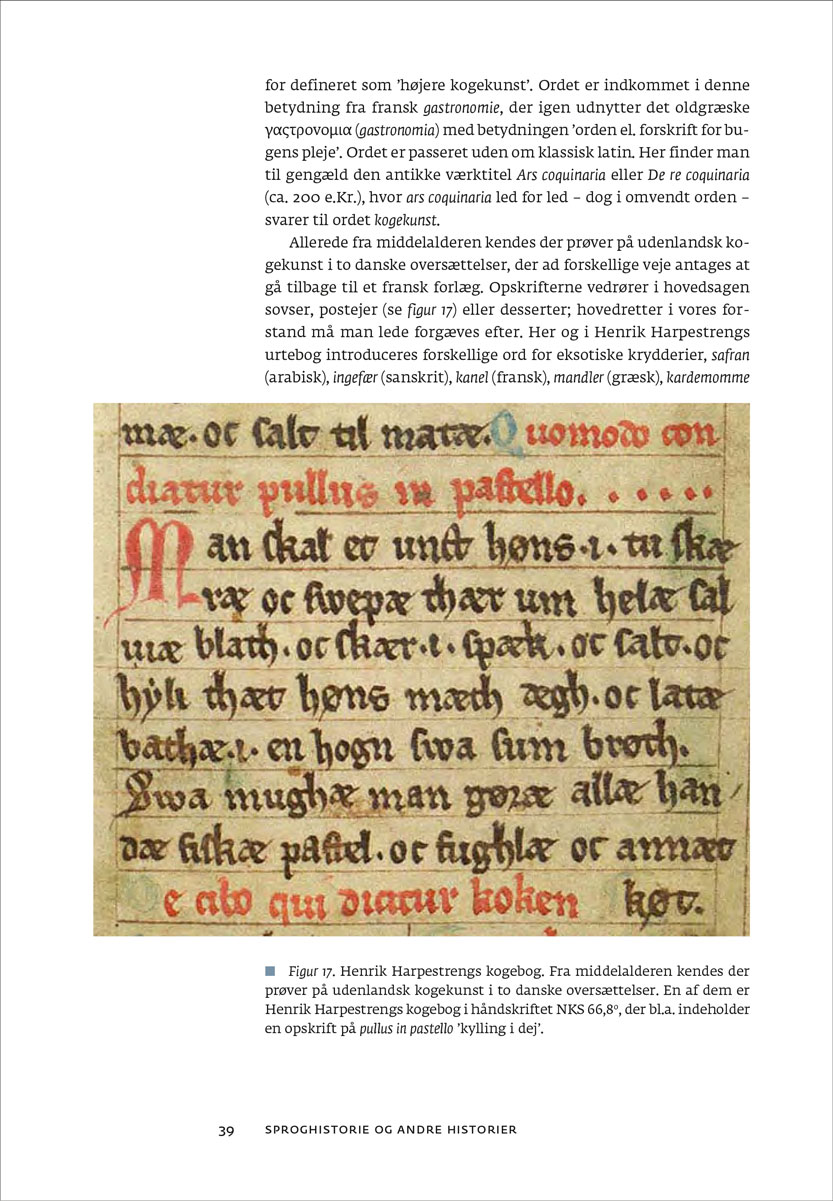 for defineret som ’højere kogekunst’. Ordet er indkommet i denne
betydning fra fransk gastronomie, der igen udnytter det oldgræske
γαςτρονομια (gastronomia) med betydningen ’orden el. forskrift for bu-
gens pleje’. Ordet er passeret uden om klassisk latin. Her finder man
til gengæld den antikke værktitel Ars coquinaria eller De re coquinaria
(ca. 200 e.Kr.), hvor ars coquinaria led for led – dog i omvendt orden –
svarer til ordet kogekunst.
Allerede fra middelalderen kendes der prøver på udenlandsk ko-
gekunst i to danske oversættelser, der ad forskellige veje antages at
gå tilbage til et fransk forlæg. Opskrifterne vedrører i hovedsagen
sovser, postejer (se figur 17) eller desserter; hovedretter i vores for-
stand må man lede forgæves efter. Her og i Henrik Harpestrengs
urtebog introduceres forskellige ord for eksotiske krydderier, safran
(arabisk), ingefær (sanskrit), kanel (fransk), mandler (græsk), kardemomme
mæ. oc salt til matæ. Quomodo con
diatur pullus in pastello. . . . . .
Man skal et unct høns .i. tu skæ
ræ oc swepæ thær um helæ sal
uiæ blath. oc skær .i. spæk. oc salt. oc
hyli thæt høns mæth dægh. oc latæ
bathæ .i. en hogn swa sum brøth.
Swa mughæ man gøræ allæ han
dæ fiskæ pastel. oc fughlæ oc annæt
e cibo qui dicatur koken køt.
■ Figur 17. Henrik Harpestrengs kogebog. Fra middelalderen kendes der
prøver på udenlandsk kogekunst i to danske oversættelser. En af dem er
Henrik Harpestrengs kogebog i håndskriftet NKS 66,8º, der bl.a. indeholder
en opskrift på pullus in pastello ’kylling i dej’.
39 SPROGHISTORIE OG ANDRE HISTORIER